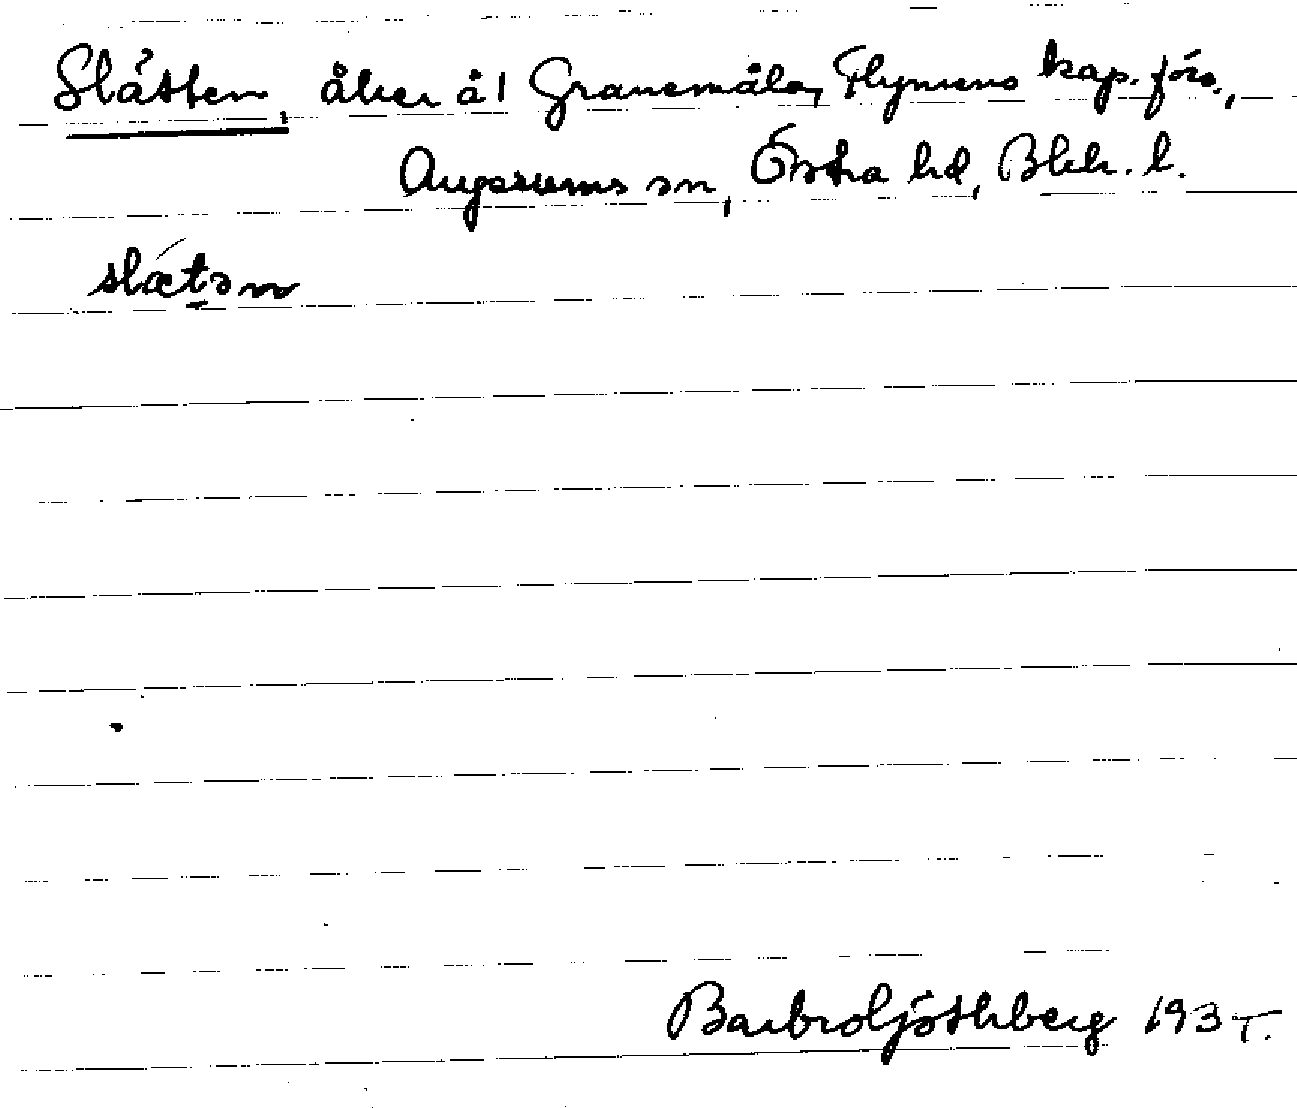 Slätten, åker å 1 Granemåla, Flymens kap. förs.,
Augerums sn, Östra hd, Blek. l.
slǽtən
Barbro Ljöthberg 193